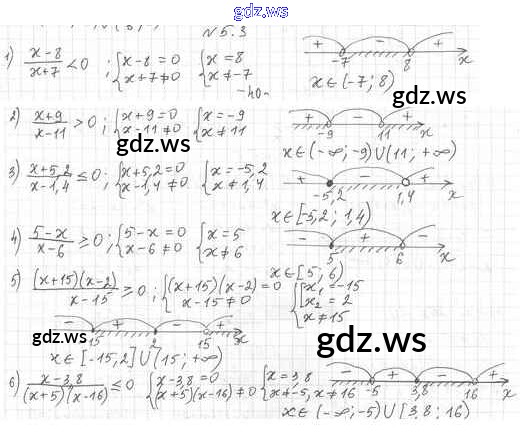 gdz.ws
N 5.3
1) (x-8)/(x+7) < 0 ; { x-8=0 x+7≠0 { x=8 x≠-7
+ - + -7 8 x
x∈(-7; 8)
gdz.ws
2) (x+9)/(x-11) > 0 ; { x+9=0 x-11≠0 { x=-9 x≠11
+ - + -9 11 x
x∈(-∞; -9)∪(11; +∞)
gdz.ws
3) (x+5,2)/(x-1,4) ≤ 0 ; { x+5,2=0 x-1,4≠0 { x=-5,2 x≠1,4
+ - + -5,2 1,4 x
x∈[-5,2; 1,4)
4) (5-x)/(x-6) ≥ 0 ; { 5-x=0 x-6≠0 { x=5 x≠6
- + - 5 6 x
x∈[5; 6)
5) ((x+15)(x-2))/(x-15) ≥ 0 ; { (x+15)(x-2)=0 x-15≠0 { x₁=-15 x₂=2 x≠15
- + - + 15 2 15 x
gdz.ws
gdz.ws
x∈[-15,2]∪(15; +∞)
6) (x-3,8)/((x+5)(x-16)) ≤ 0 { x-3,8=0 (x+5)(x-16)≠0 { x=3,8 x≠-5, x≠16
- + - + -5 3,8 16 x
x∈(-∞; -5)∪[3,8; 16)